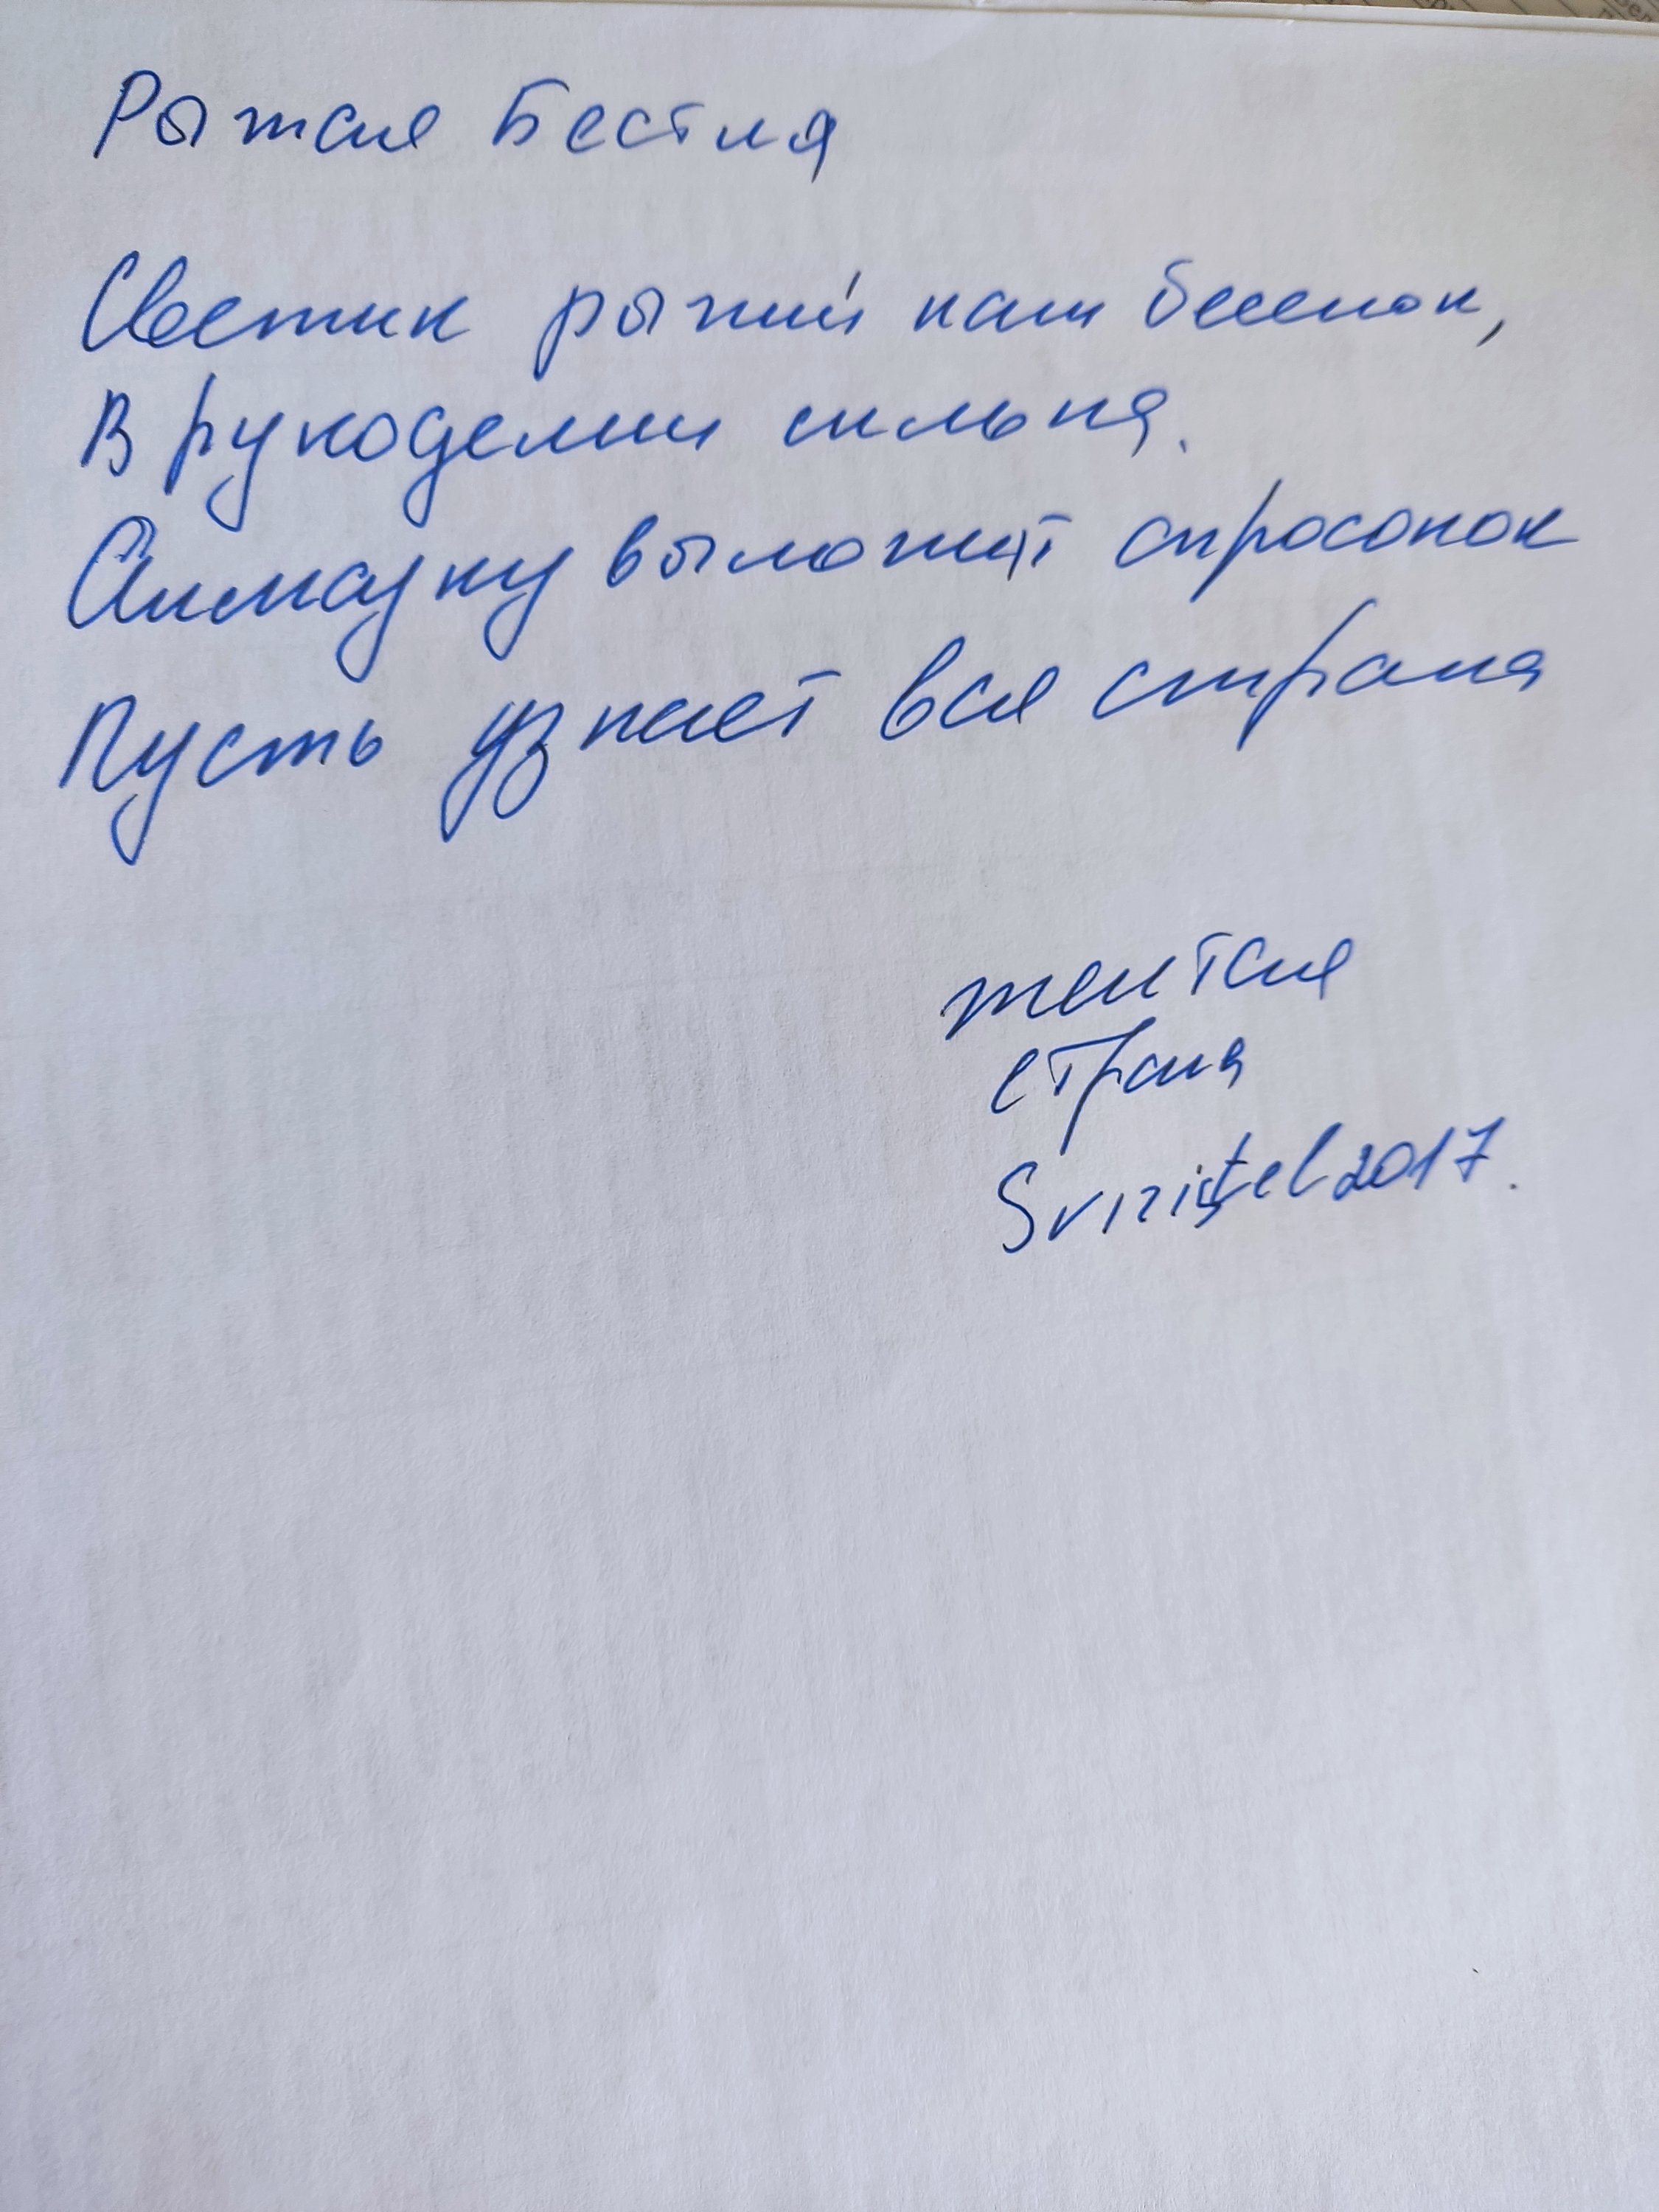 Рыжая Бестия
Светик рыжий наш бесенок,
В рукоделии сильна.
Анмаунку выложит спросонок
Пусть узнает вся страна
желтая
страна
Sviristel2017.